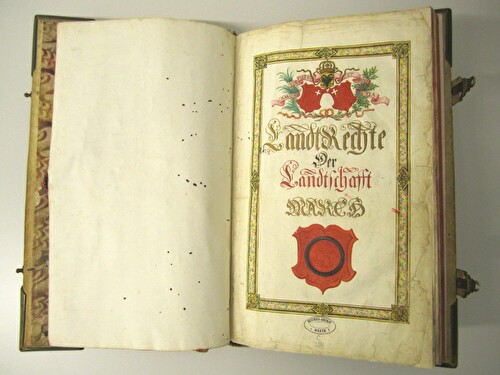 LandtRechte
Der
Landtschafft
MARCH